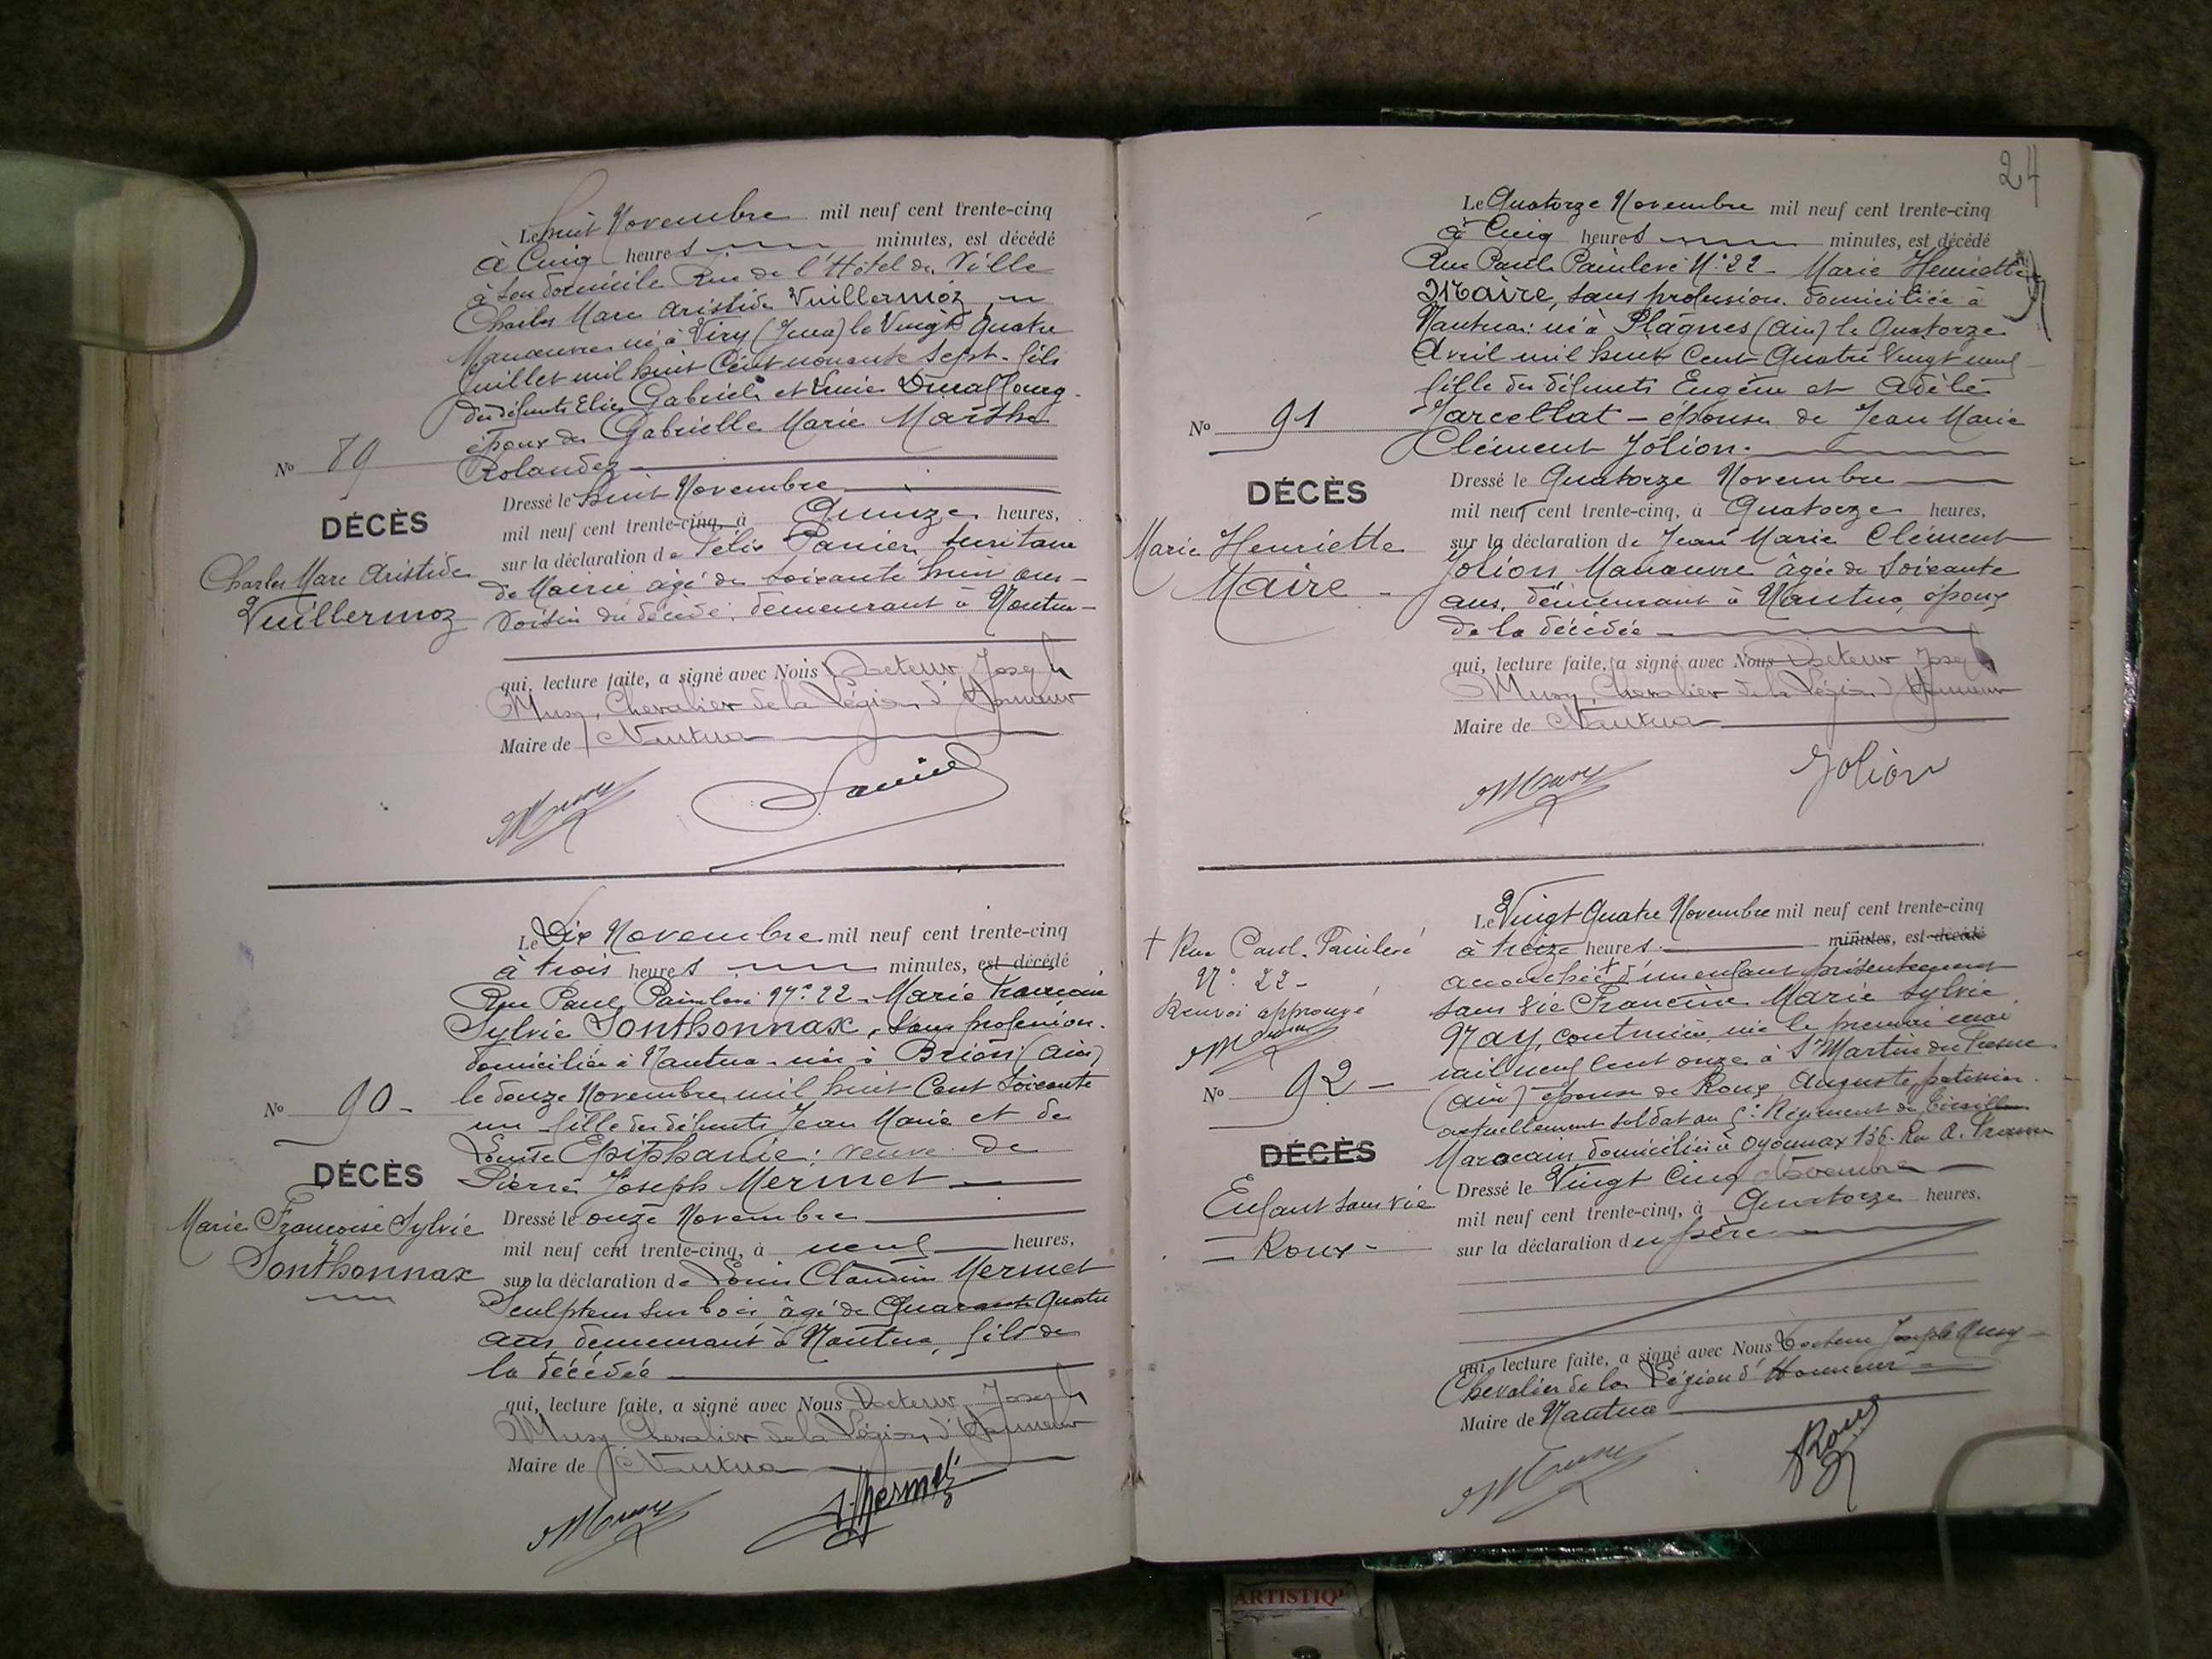 Le huit Novembre mil neuf cent trente-cinq
à Cinq heures minutes, est décédé
à son domicile Rue de l'Hôtel de Ville
Charles Marc Aristide Vuillermoz
Manœuvre né à Viry (Jura) le Vingt Quatre
Juillet mil huit Cent nonante sept. fils
des défunts Elie Gabriel et
époux de Gabrielle Marie Marthe
Rolandez
No 89
DÉCÈS
Charles Marc Aristide
Vuillermoz
Dressé le huit Novembre
mil neuf cent trente-cinq, à Quinze heures,
sur la déclaration de Félix Panier, secrétaire
de Mairie âgé de soixante huit ans
voisin du décédé, demeurant à Nantua
qui, lecture faite, a signé avec Nous Docteur Joseph
Musy, Chevalier de la Légion d'Honneur
Maire de Nantua
Le Dix Novembre mil neuf cent trente-cinq
à trois heures minutes, est décédé
Rue Paul Painlevé N° 22 - Marie Françoise
Sylvie Sonthonnax, sans profession.
domiciliée à Nantua - née à Brion (Ain)
le douze Novembre mil huit Cent soixante
un fille des défunts Jean Marie et de
Louise Epiphanie; veuve de
Pierre Joseph Mermet
No 90 -
DÉCÈS
Marie Françoise Sylvie
Sonthonnax
Dressé le onze Novembre
mil neuf cent trente-cinq, à neuf heures,
sur la déclaration de Louis Claudin Mermet
Sculpteur sur bois âgé de Quarante Quatre
ans, demeurant à Nantua, fils de
la décédée
qui, lecture faite, a signé avec Nous Docteur Joseph
Musy, Chevalier de la Légion d'Honneur
Maire de Nantua
24
Le Quatorze Novembre mil neuf cent trente-cinq
à Cinq heures minutes, est décédé
Rue Paul Painlevé N° 22 - Marie Henriette
Maire, sans profession. domiciliée à
Nantua: né à Plagnes (Ain) le Quatorze
Avril mil huit Cent Quatre Vingt neuf
fille des défunts Eugène et Adèle
Marcellat - épouse de Jean Marie
Clément Jolion.
No 91
DÉCÈS
Marie Henriette
Maire -
Dressé le Quatorze Novembre
mil neuf cent trente-cinq, à Quatorze heures,
sur la déclaration de Jean Marie Clément
Jolion Manœuvre âgée de soixante
ans, demeurant à Nantua, époux
de la décédée
qui, lecture faite, a signé avec Nous Docteur Joseph
Musy, Chevalier de la Légion d'Honneur
Maire de Nantua
Jolion
Le Vingt Quatre Novembre mil neuf cent trente-cinq
à treize heures minutes, est décédé
accouchée + d'un enfant présentement
sans vie Francine Marie Sylvie
May, couturière née le premier mai
mil neuf cent onze à St Martin du Fresne
(Ain) épouse de Roux Auguste, patissier
actuellement soldat au 5e Régiment de Tirailleurs
Marocain domiciliée à Oyonnax 136. Rue A. France
+ Rue Paul Painlevé
N° 22 -
Renvoi approuvé
No 92 -
DÉCÈS
Enfant sans vie
Roux -
Dressé le Vingt Cinq Novembre
mil neuf cent trente-cinq, à Quatorze heures,
sur la déclaration du père
qui, lecture faite, a signé avec Nous Docteur Joseph Musy
Chevalier de la Légion d'Honneur
Maire de Nantua
Roux
ARTISTIQ